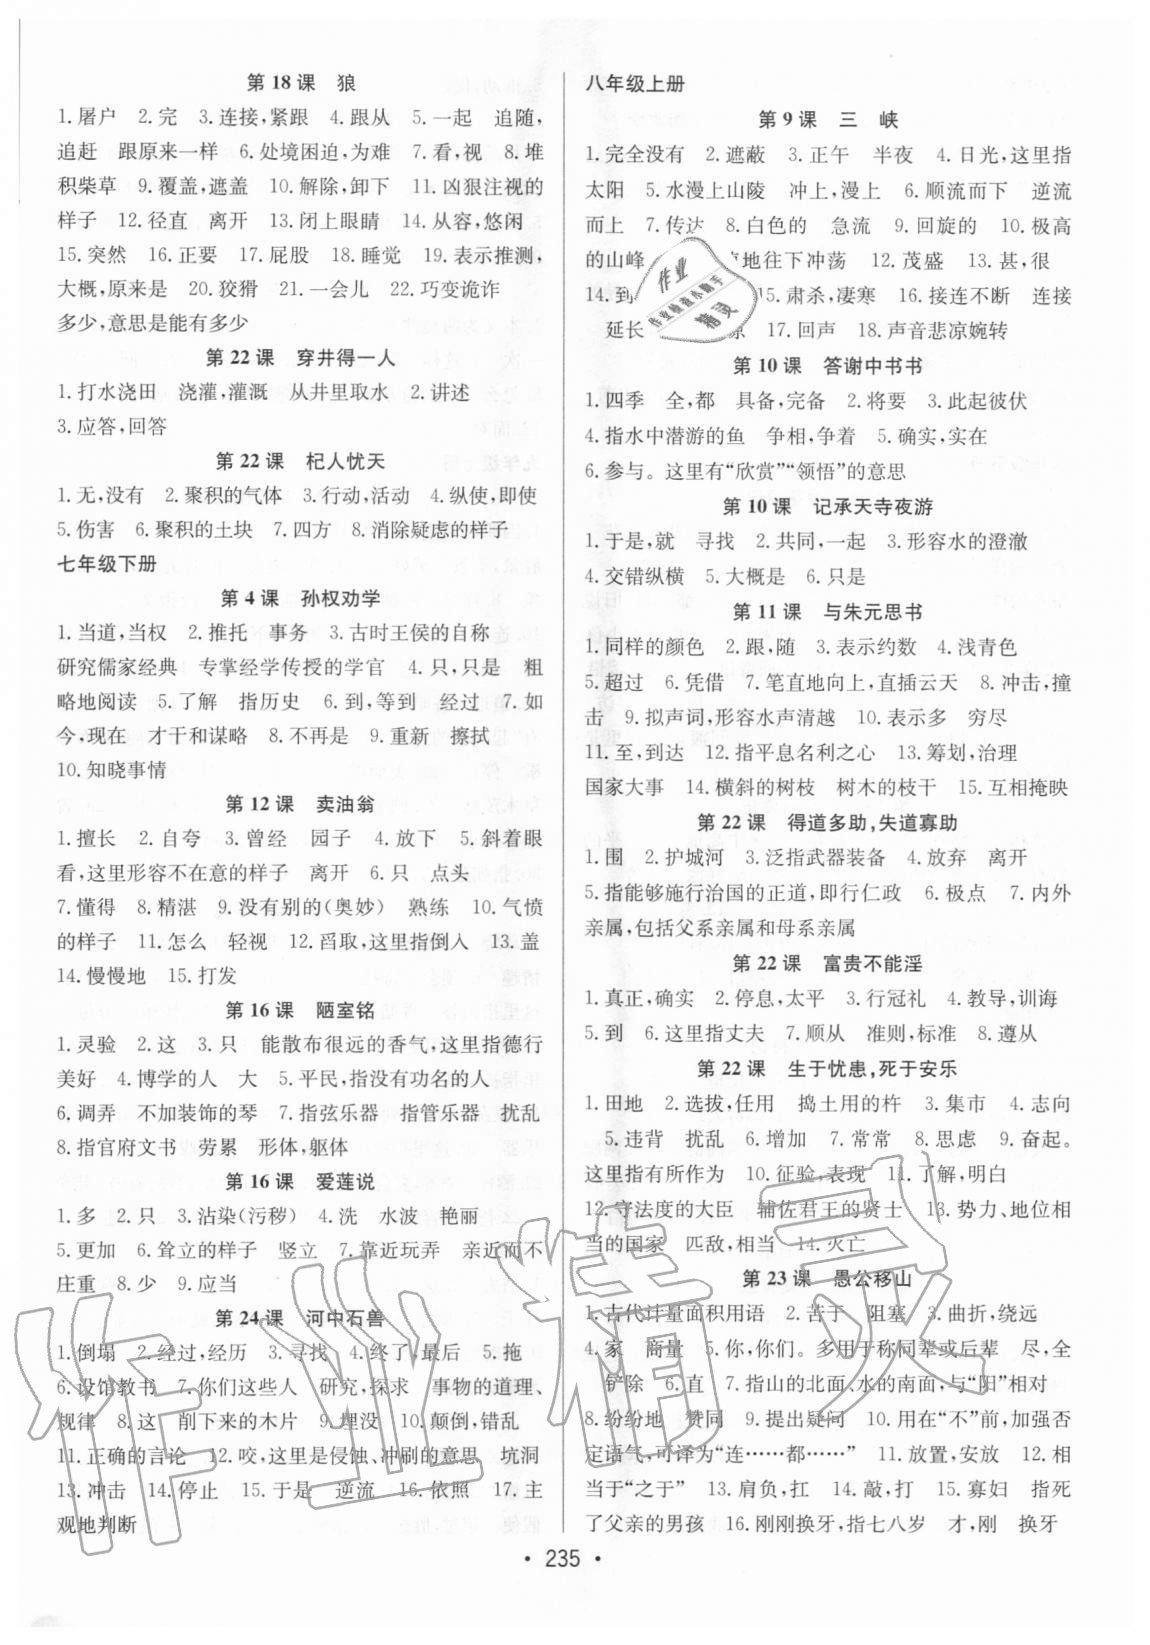 第 18 课　狼
1. 屠户　2. 完　3. 连接,紧跟　4. 跟从　5. 一起　追随,
追赶　跟原来一样　6. 处境困迫,为难　7. 看,视　8. 堆
积柴草　9. 覆盖,遮盖　10. 解除,卸下　11. 凶狠注视的
样子　12. 径直　离开　13. 闭上眼睛　14. 从容,悠闲
15. 突然　16. 正要　17. 屁股　18. 睡觉　19. 表示推测,
大概,原来是　20. 狡猾　21. 一会儿　22. 巧变诡诈
多少,意思是能有多少
第 22 课　穿井得一人
1. 打水浇田　浇灌,灌溉　从井里取水　2. 讲述
3. 应答,回答
第 22 课　杞人忧天
1. 无,没有　2. 聚积的气体　3. 行动,活动　4. 纵使,即使
5. 伤害　6. 聚积的土块　7. 四方　8. 消除疑虑的样子
七年级下册
第 4 课　孙权劝学
1. 当道,当权　2. 推托　事务　3. 古时王侯的自称
研究儒家经典　专掌经学传授的学官　4. 只,只是　粗
略地阅读　5. 了解　指历史　6. 到,等到　经过　7. 如
今,现在　才干和谋略　8. 不再是　9. 重新　擦拭
10. 知晓事情
第 12 课　卖油翁
1. 擅长　2. 自夸　3. 曾经　园子　4. 放下　5. 斜着眼
看,这里形容不在意的样子　离开　6. 只　点头
7. 懂得　8. 精湛　9. 没有别的(奥妙)　熟练　10. 气愤
的样子　11. 怎么　轻视　12. 舀取,这里指倒入　13. 盖
14. 慢慢地　15. 打发
第 16 课　陋室铭
1. 灵验　2. 这　3. 只　能散布很远的香气,这里指德行
美好　4. 博学的人　大　5. 平民,指没有功名的人
6. 调弄　不加装饰的琴　7. 指弦乐器　指管乐器　扰乱
8. 指官府文书　劳累　形体,躯体
第 16 课　爱莲说
1. 多　2. 只　3. 沾染(污秽)　4. 洗　水波　艳丽
5. 更加　6. 耸立的样子　竖立　7. 靠近玩弄　亲近而不
庄重　8. 少　9. 应当
第 24 课　河中石兽
1. 倒塌　2. 经过,经历　3. 寻找　4. 终了,最后　5. 拖
6. 设馆教书　7. 你们这些人　研究,探求　事物的道理、
规律　8. 这　削下来的木片　9. 埋没　10. 颠倒,错乱
11. 正确的言论　12. 咬,这里是侵蚀、冲刷的意思　坑洞
13. 冲击　14. 停止　15. 于是　逆流　16. 依照　17. 主
观地判断
八年级上册
第 9 课　三　峡
1. 完全没有　2. 遮蔽　3. 正午　半夜　4. 日光,这里指
太阳　5. 水漫上山陵　冲上,漫上　6. 顺流而下　逆流
而上　7. 传达　8. 白色的　急流　9. 回旋的　10. 极高
的山峰　地往下冲荡　12. 茂盛　13. 甚,很
14. 到　15. 肃杀,凄寒　16. 接连不断　连接
延长　17. 回声　18. 声音悲凉婉转
第 10 课　答谢中书书
1. 四季　全,都　具备,完备　2. 将要　3. 此起彼伏
4. 指水中潜游的鱼　争相,争着　5. 确实,实在
6. 参与。这里有“欣赏”“领悟”的意思
第 10 课　记承天寺夜游
1. 于是,就　寻找　2. 共同,一起　3. 形容水的澄澈
4. 交错纵横　5. 大概是　6. 只是
第 11 课　与朱元思书
1. 同样的颜色　2. 跟,随　3. 表示约数　4. 浅青色
5. 超过　6. 凭借　7. 笔直地向上,直插云天　8. 冲击,撞
击　9. 拟声词,形容水声清越　10. 表示多　穷尽
11. 至,到达　12. 指平息名利之心　13. 筹划,治理
国家大事　14. 横斜的树枝　树木的枝干　15. 互相掩映
第 22 课　得道多助,失道寡助
1. 围　2. 护城河　3. 泛指武器装备　4. 放弃　离开
5. 指能够施行治国的正道,即行仁政　6. 极点　7. 内外
亲属,包括父系亲属和母系亲属
第 22 课　富贵不能淫
1. 真正,确实　2. 停息,太平　3. 行冠礼　4. 教导,训诲
5. 到　6. 这里指丈夫　7. 顺从　准则,标准　8. 遵从
第 22 课　生于忧患,死于安乐
1. 田地　2. 选拔,任用　捣土用的杵　3. 集市　4. 志向
5. 违背　扰乱　6. 增加　7. 常常　8. 思虑　9. 奋起。
这里指有所作为　10. 征验,表现　11. 了解,明白
12. 守法度的大臣　辅佐君王的贤士　13. 势力、地位相
当的国家　匹敌,相当　14. 灭亡
第 23 课　愚公移山
1. 古代计量面积用语　2. 苦于　阻塞　3. 曲折,绕远
4. 家　商量　5. 你,你们。多用于称同辈或后辈　尽,全
铲除　6. 直　7. 指山的北面、水的南面,与“阳”相对
8. 纷纷地　赞同　9. 提出疑问　10. 用在“不”前,加强否
定语气,可译为“连……都……”　11. 放置,安放　12. 相
当于“之于”　13. 肩负,扛　14. 敲,打　15. 寡妇　指死
了父亲的男孩　16. 刚刚换牙,指七八岁　才,刚　换牙
• 235 •
作业
作业检查小助手
精灵
作业精灵